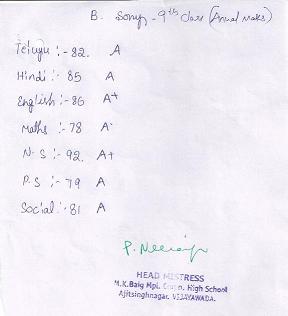 B. Sony - 9th class (Annual Marks)
Telugu :- 82. A
Hindi :- 85 A
English :- 86 A+
Maths :- 78 A
N.S :- 92. A+
P.S :- 79 A
Social :- 81 A
HEAD MISTRESS
M.K.Baig Mpl. High School
Ajitsinghnagar, VIJAYAWADA.